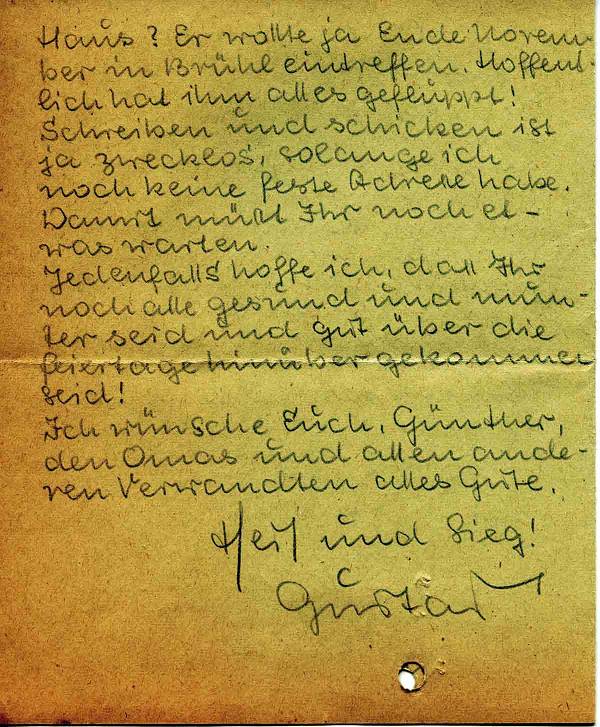 Haus? Er wollte ja Ende Novem-
ber in Brühl eintreffen. Hoffent-
lich hat ihm alles gefluppt!
Schreiben und schicken ist
ja zwecklos, solange ich
noch keine feste Adresse habe.
Damit müßt Ihr noch et-
was warten.
Jedenfalls hoffe ich, daß Ihr
noch alle gesund und mun-
ter seid und gut über die
Feiertage hinüber gekommen
seid!
Ich wünsche Euch, Günther,
den Omas und allen ande-
ren Verwandten alles Gute.
Heil und Sieg!
Gustav